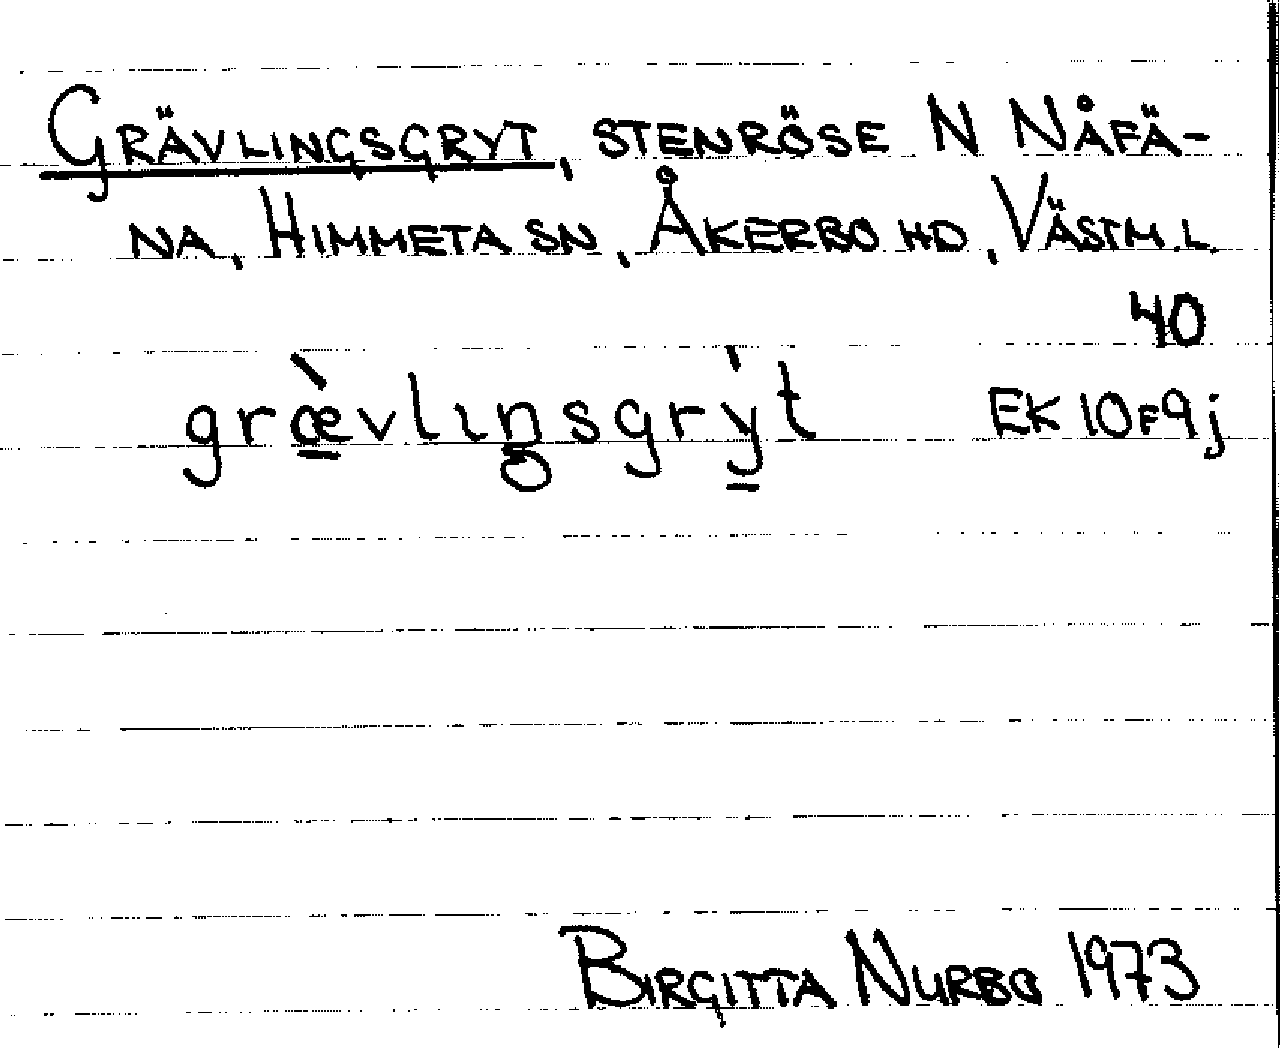 GRÄVLINGSGRYT, STENRÖSE N NÅFÄ-
NA, HIMMETA SN, ÅKERBO HD, VÄSTM.L.
40
græ̀vlıŋsgrýt EK 10F9j
BIRGITTA NURBO 1973